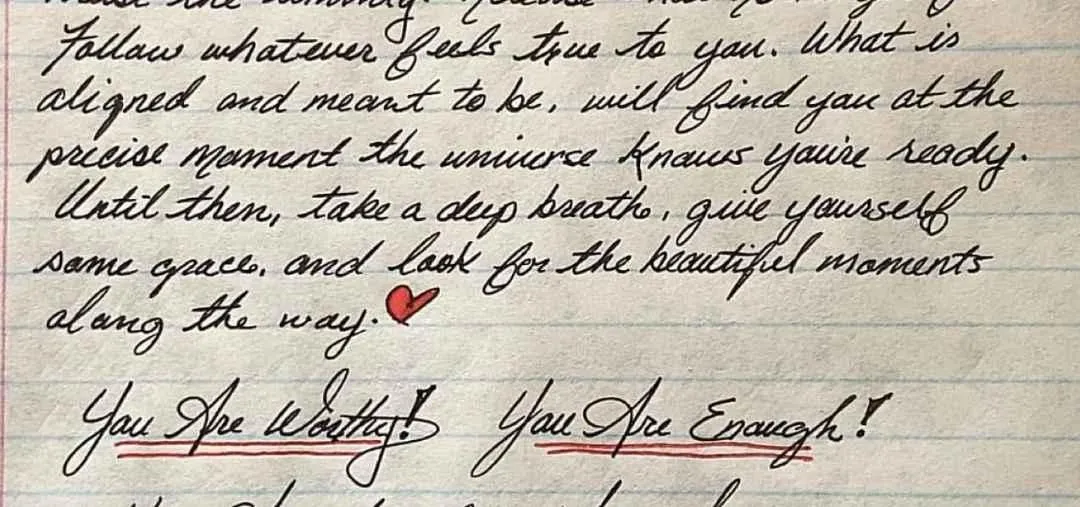 Follow whatever feels true to you. What is
aligned and meant to be, will find you at the
precise moment the universe knows you're ready.
Until then, take a deep breath, give yourself
some grace, and look for the beautiful moments
along the way.
You Are Worthy! You Are Enough!